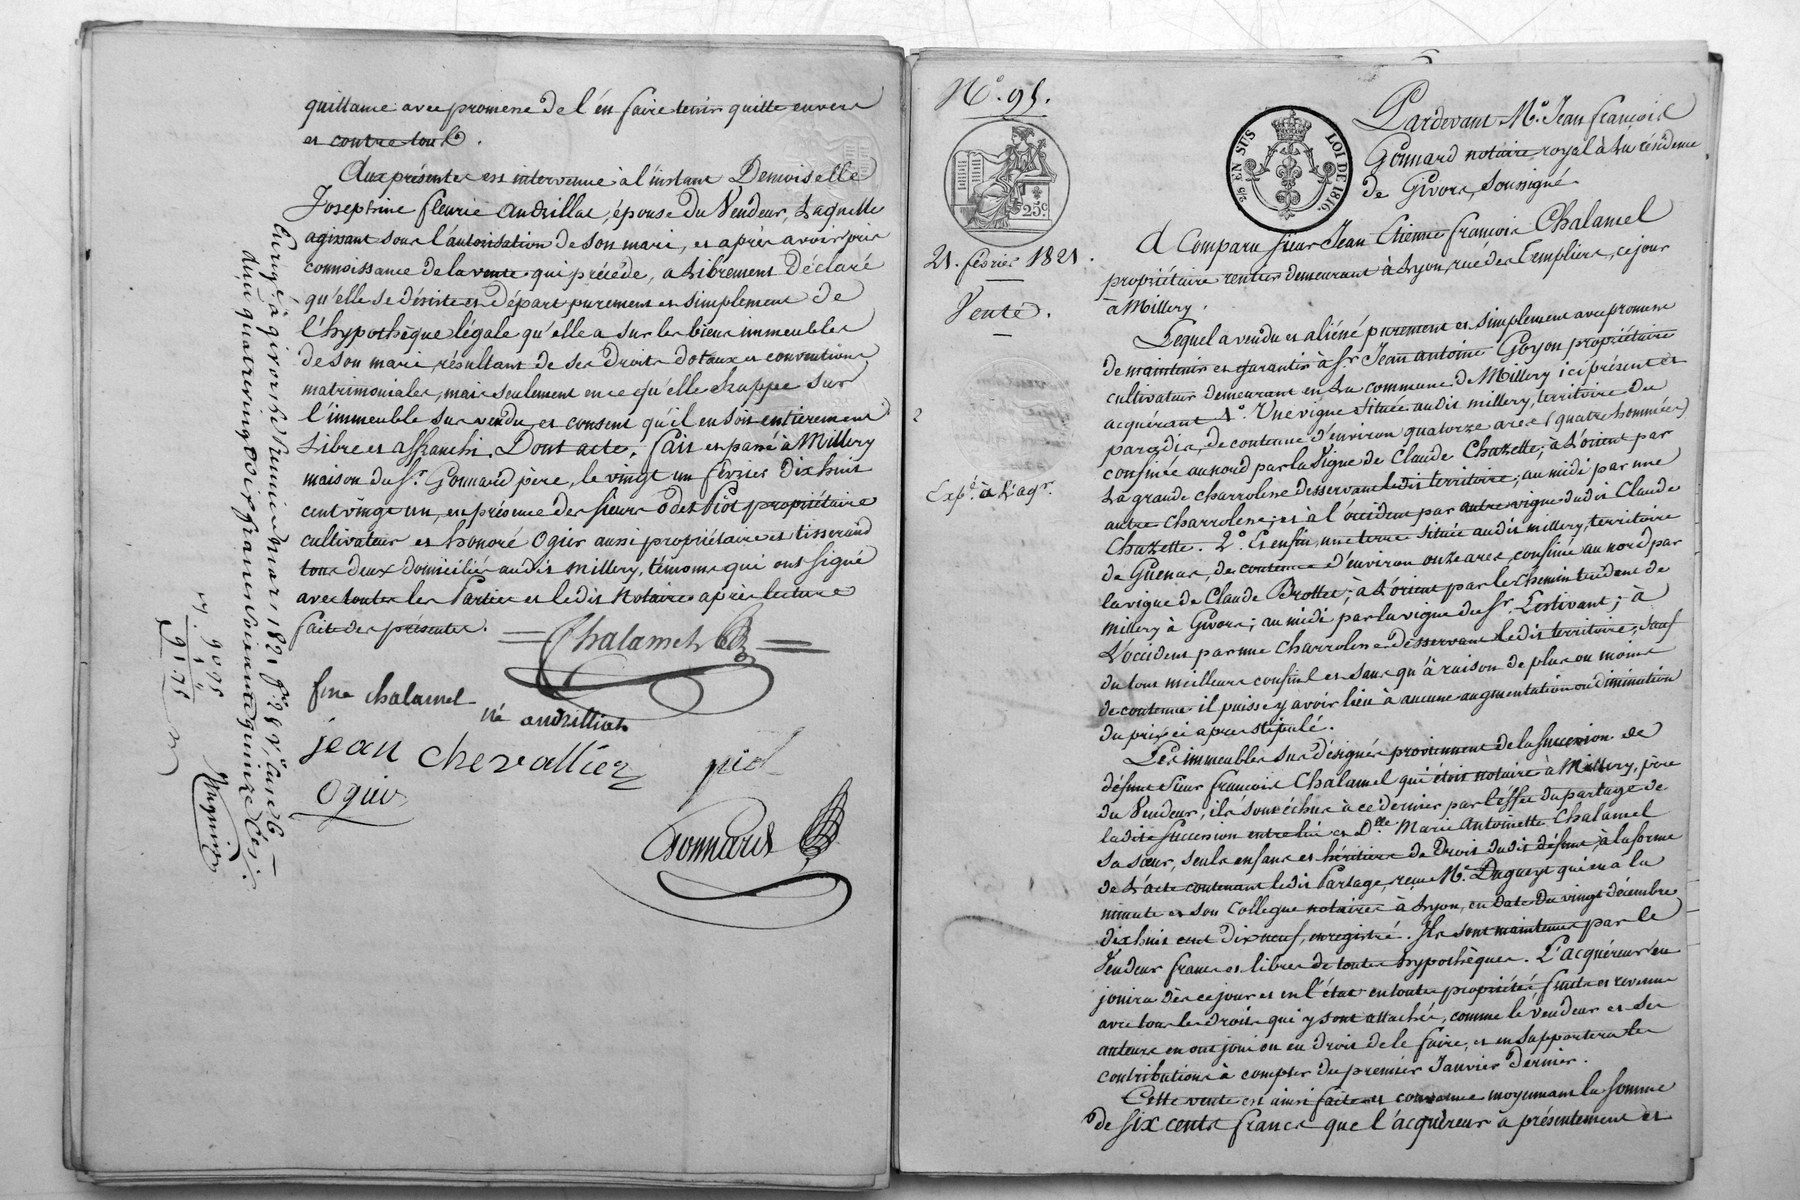 quittance avec promesse de l'en faire tenir quitte envers
et contre tous.
Aux présentes est intervenue à l'instant Demoiselle
Josephine fleurie andrillat, épouse du Vendeur, Laquelle
agissant sous l'autorisation de son mari, et après avoir pris
connoissance de la vente qui précéde, a Librement Déclaré
qu'elle se désiste et départ purement et simplement de
l'hypothèque légale qu'elle a sur les biens immeubles
de son mari, résultant de ses Droits dotaux et conventions
matrimoniales, mais seulement en ce qu'elle frappe sur
l'immeuble sus vendu, et consent qu'il en soit entierement
Libre et affranchi. Dont acte, fait et passé à Millery
maison du Sr. Gonnard père, le vingt un février dix huit
cent vingt un, en présence des sieurs Odet Piot propriétaire
cultivateur et honoré Ogier aussi propriétaire et tisserand
tous deux domiciliés audit Millery, témoins qui ont signé
avec toutes les Parties et ledit Notaire après lecture
faite des présentes.
Chalamel
fine chalamel
né andrilliat
jean chevallier
piot
Ogier
Gonnard
Enrgé à givors le huit mars 1821 fo. 28 Vo. Case
reçu quatre vingt dix francs soixante quinze Ces.
90.75
91.75
No. 95.
25c
2es EN SUS LOI DE 1816.
21. février 1821.
Vente.
Expé. à L'aqr.
Pardevant Me. Jean françois
Gonnard notaire royal à La résidence
de Givors, soussigné
A Comparu Sieur Jean Etienne françois Chalamel
propriétaire rentier demeurant à Lyon, rue des Templiers, ce jour
à Millery.
Lequel a vendu et aliéné purement et simplement avec promesse
de maintenir et garantir à Sr. Jean antoine Goyon propriétaire
cultivateur demeurant en La commune de Millery ici présent et
acquérant 1o. Une vigne située audit millery, territoire du
paradis, de contenue d'environ quatorze ares (quatre hommées)
confinée au nord par la Vigne de Claude Chazette; à L'orient par
La grande charroliere desservant ledit territoire; au midi par une
autre charroliere; et à l'occident par autre vigne dudit Claude
Chazette. 2o. Et enfin, une terre située audit millery, territoire
de Guenas, de contenue d'environ onze ares confinée au nord par
la vigne de Claude Brottet; à L'orient par le chemin tendant de
Millery à Givors; au midi par la vigne du Sr. Lestivant; à
L'occident par une charroliere desservant ledit territoire, sauf
du tout meilleurs confins et sans qu'à raison de plus ou moins
de contenue il puisse y avoir lieu à aucune augmentation ou diminution
du prix ci après stipulé.
Les immeubles sus désignés proviennent de la succession de
défunt Sieur françois Chalamel qui étoit notaire à Millery, père
du Vendeur, ils sont échus à ce dernier par l'effet du partage de
ladite succession entre lui et Dlle. Marie Antoinette Chalamel
sa sœur, seuls enfans et héritiers de Droit dudit défunt, à la forme
de L'acte contenant ledit Partage, reçu Me. Dugueyt qui en a la
minute et son Collegue notaires à Lyon, en date du vingt décembre
dix huit cent dix neuf, enregistré. Ils sont maintenus par le
Vendeur francs et libres de toutes hypothèques. L'acquéreur en
jouira dès ce jour et en l'état en toutes propriétés fruits et revenus
avec tous les droits qui y sont attachés, comme le vendeur et ses
auteurs en ont joui ou eu droit de le faire, et en supportera les
contributions à compter du premier Janvier dernier.
Cette vente est ainsi faite et convenue moyennant la somme
de Six cents francs que l'acquéreur a présentement et